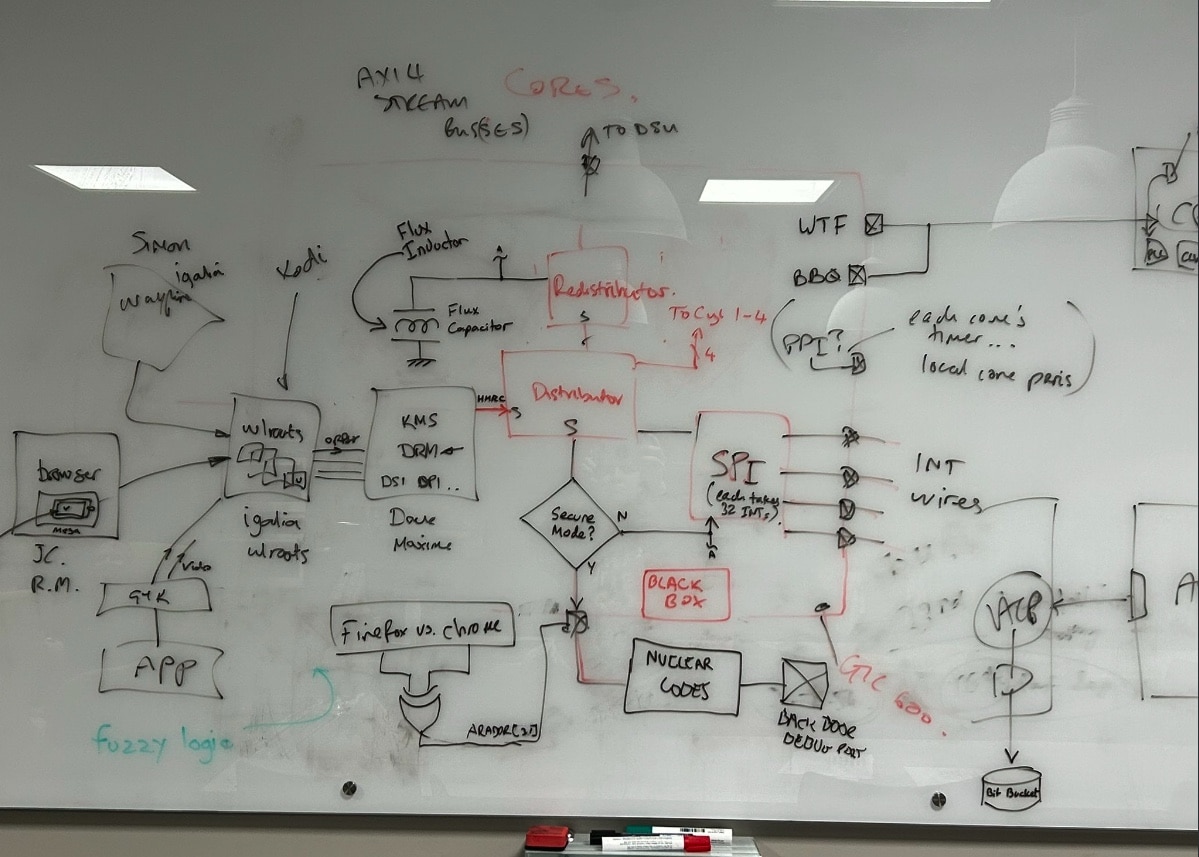 AXI4
STREAM
BUS(SES)
CORES.
TO DSU
Simon
igalia
wayfire
Kodi
Flux
Inductor
Flux
Capacitor
Redistributor.
S
To Cyl 1-4
4
WTF
BBQ
PPI?
each core's
timer...
local core peris
Distributor
S
S
HHRC
wlroots
igalia
wlroots
KMS
DRM
DSI DPI..
Dave
Maxime
browser
V
MESA
JC.
R.M.
GTK
APP
SPI
(each takes
32 INTs).
INT
wires
Secure
Mode?
N
Y
BLACK
BOX
Firefox vs. Chrome
ARADDR[27]
fuzzy logic
NUCLEAR
CODES
BACK DOOR
DEBUG PORT
GIC 600.
Bit Bucket